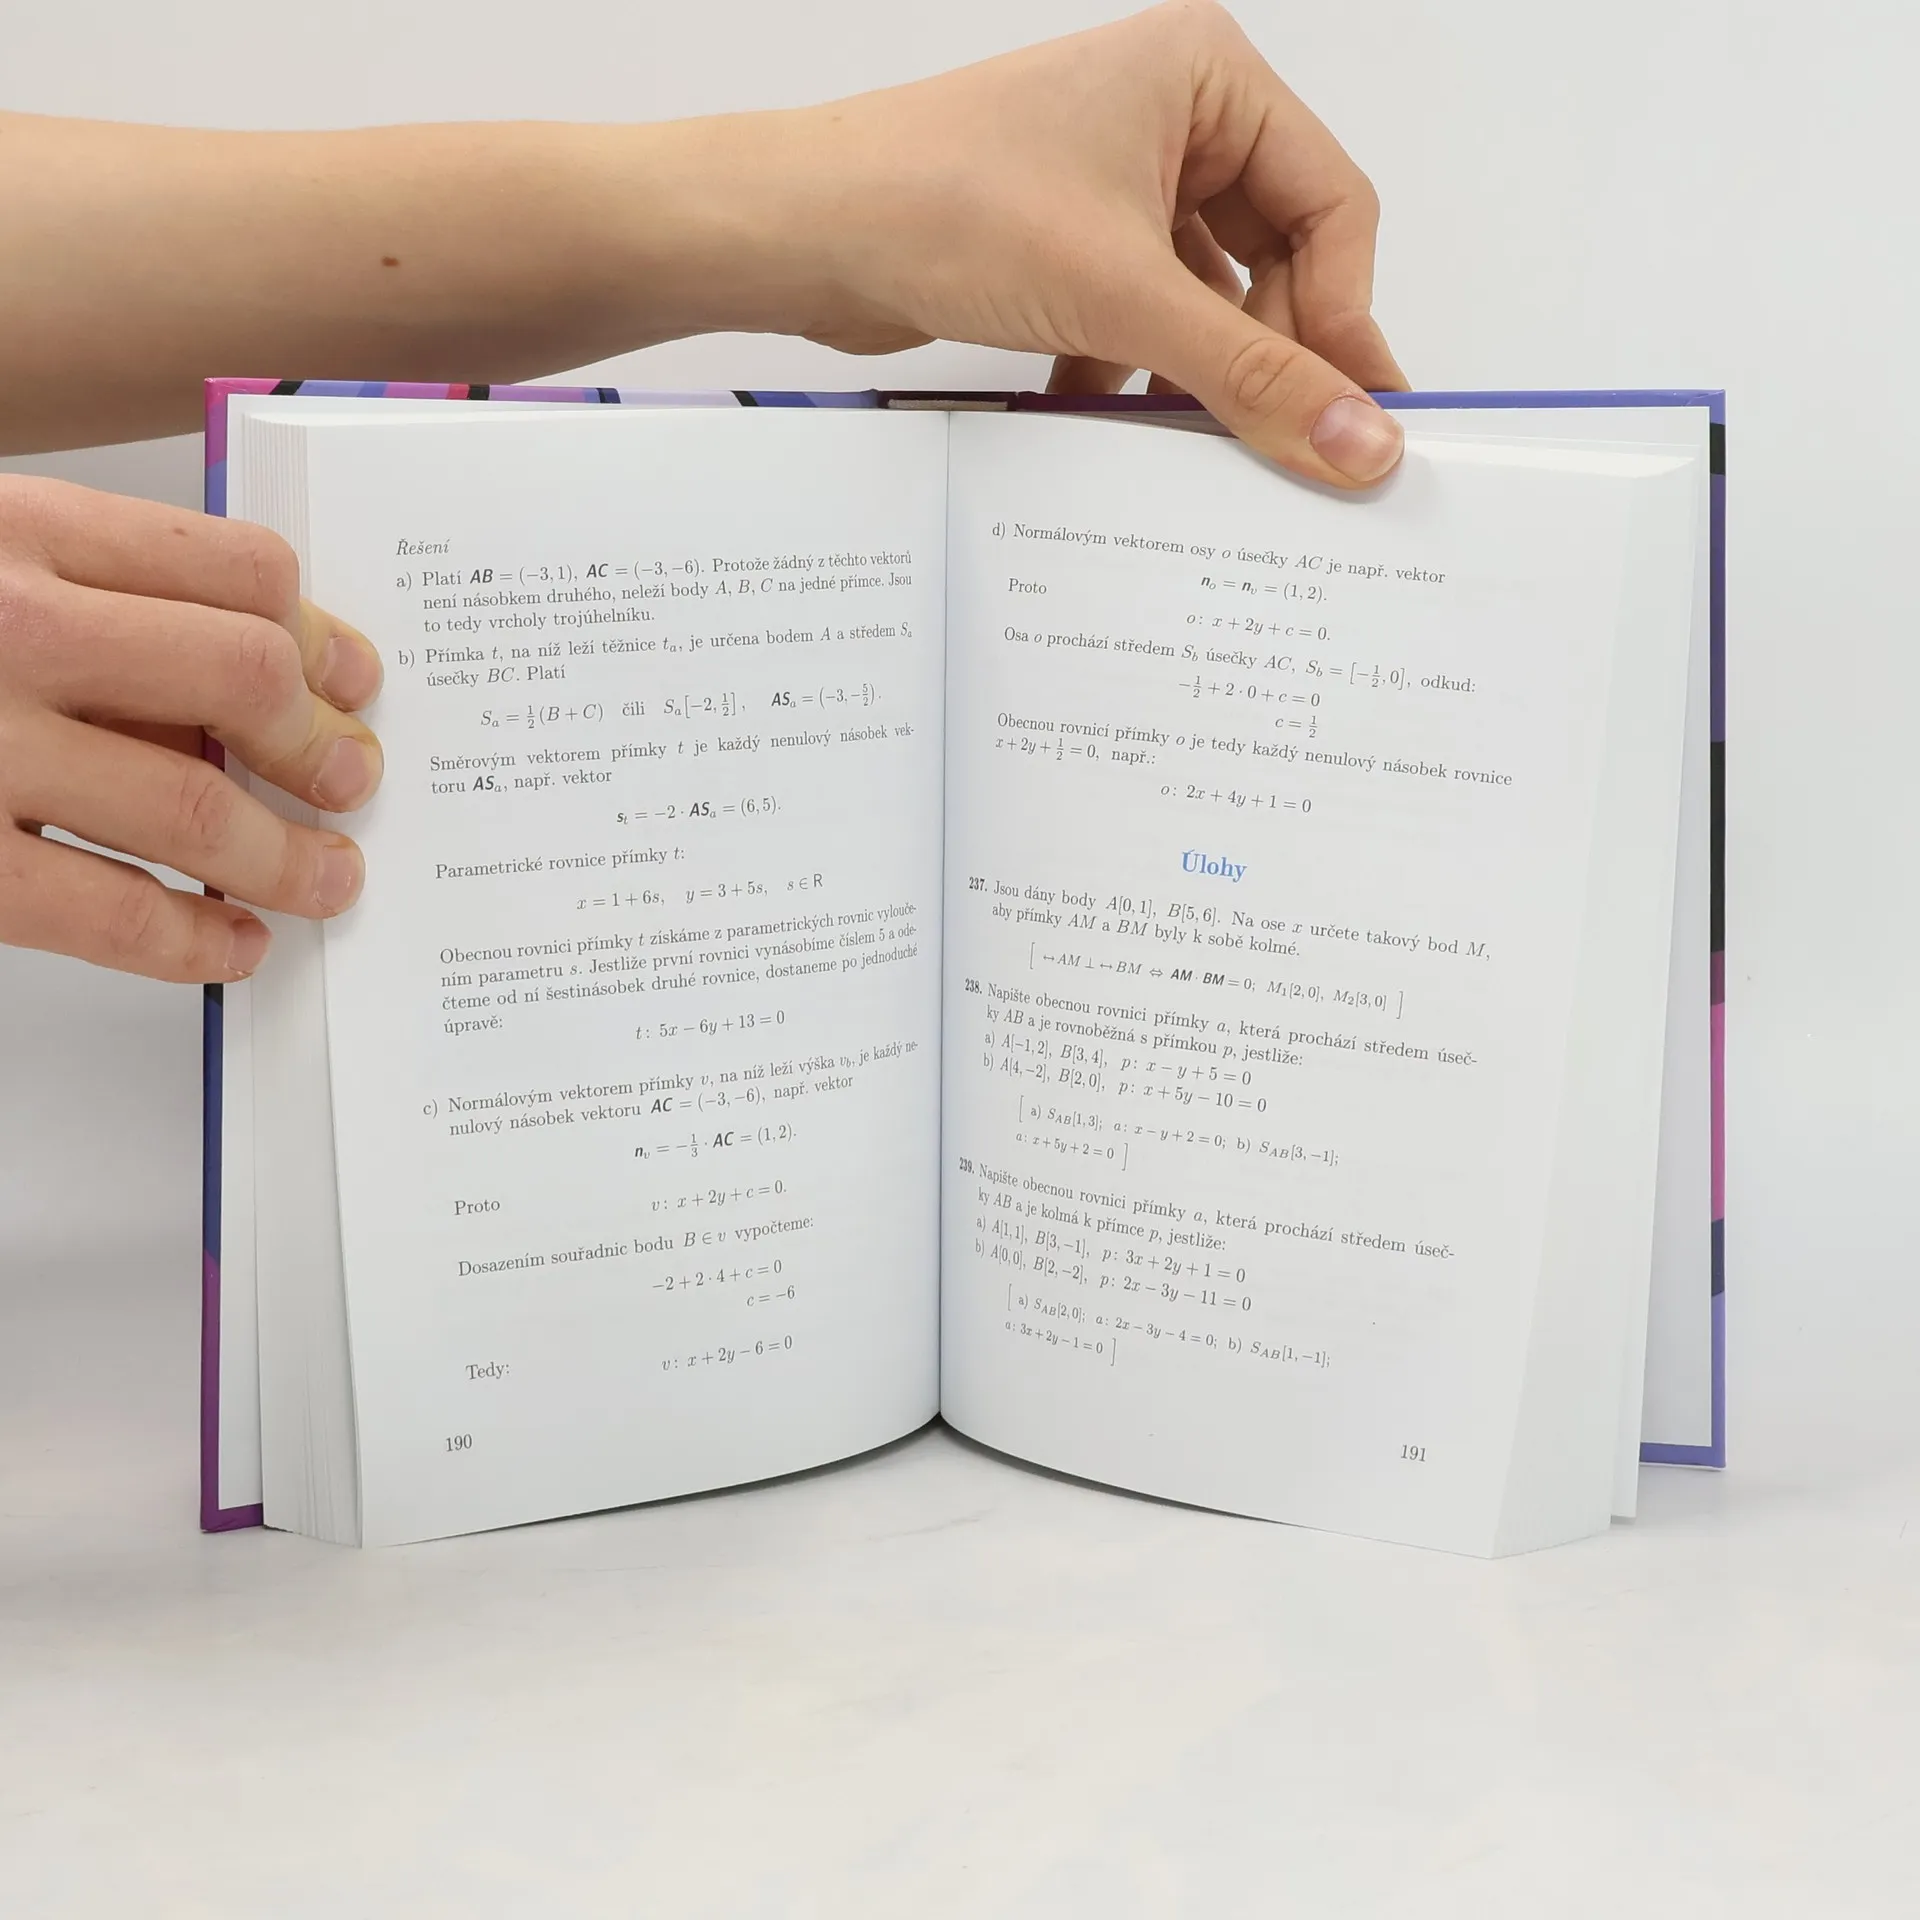 Řešení
a) Platí AB = (−3, 1), AC = (−3, −6). Protože žádný z těchto vektorů
není násobkem druhého, neleží body A, B, C na jedné přímce. Jsou
to tedy vrcholy trojúhelníku.
b) Přímka t, na níž leží těžnice tₐ, je určena bodem A a středem Sₐ
úsečky BC. Platí
Sₐ = ½(B + C) čili Sₐ[−2, ½], ASₐ = (−3, −5/2).
Směrovým vektorem přímky t je každý nenulový násobek vek-
toru ASₐ, např. vektor
sₜ = −2 · ASₐ = (6, 5).
Parametrické rovnice přímky t:
x = 1 + 6s, y = 3 + 5s, s ∈ R
Obecnou rovnici přímky t získáme z parametrických rovnic vylouče-
ním parametru s. Jestliže první rovnici vynásobíme číslem 5 a ode-
čteme od ní šestinásobek druhé rovnice, dostaneme po jednoduché
úpravě:
t: 5x − 6y + 13 = 0
c) Normálovým vektorem přímky v, na níž leží výška v_b, je každý ne-
nulový násobek vektoru AC = (−3, −6), např. vektor
nᵥ = −⅓ · AC = (1, 2).
Proto v: x + 2y + c = 0.
Dosazením souřadnic bodu B ∈ v vypočteme:
−2 + 2 · 4 + c = 0
c = −6
Tedy: v: x + 2y − 6 = 0
190
d) Normálovým vektorem osy o úsečky AC je např. vektor
nₒ = nᵥ = (1, 2).
Proto
o: x + 2y + c = 0.
Osa o prochází středem S_b úsečky AC, S_b = [−½, 0], odkud:
−½ + 2 · 0 + c = 0
c = ½
Obecnou rovnicí přímky o je tedy každý nenulový násobek rovnice
x + 2y + ½ = 0, např.:
o: 2x + 4y + 1 = 0
Úlohy
237. Jsou dány body A[0, 1], B[5, 6]. Na ose x určete takový bod M,
aby přímky AM a BM byly k sobě kolmé.
[ ↔AM ⊥ ↔BM ⇔ AM · BM = 0; M₁[2, 0], M₂[3, 0] ]
238. Napište obecnou rovnici přímky a, která prochází středem úseč-
ky AB a je rovnoběžná s přímkou p, jestliže:
a) A[−1, 2], B[3, 4], p: x − y + 5 = 0
b) A[4, −2], B[2, 0], p: x + 5y − 10 = 0
[ a) S_AB[1, 3]; a: x − y + 2 = 0; b) S_AB[3, −1];
a: x + 5y + 2 = 0 ]
239. Napište obecnou rovnici přímky a, která prochází středem úseč-
ky AB a je kolmá k přímce p, jestliže:
a) A[1, 1], B[3, −1], p: 3x + 2y + 1 = 0
b) A[0, 0], B[2, −2], p: 2x − 3y − 11 = 0
[ a) S_AB[2, 0]; a: 2x − 3y − 4 = 0; b) S_AB[1, −1];
a: 3x + 2y − 1 = 0 ]
191